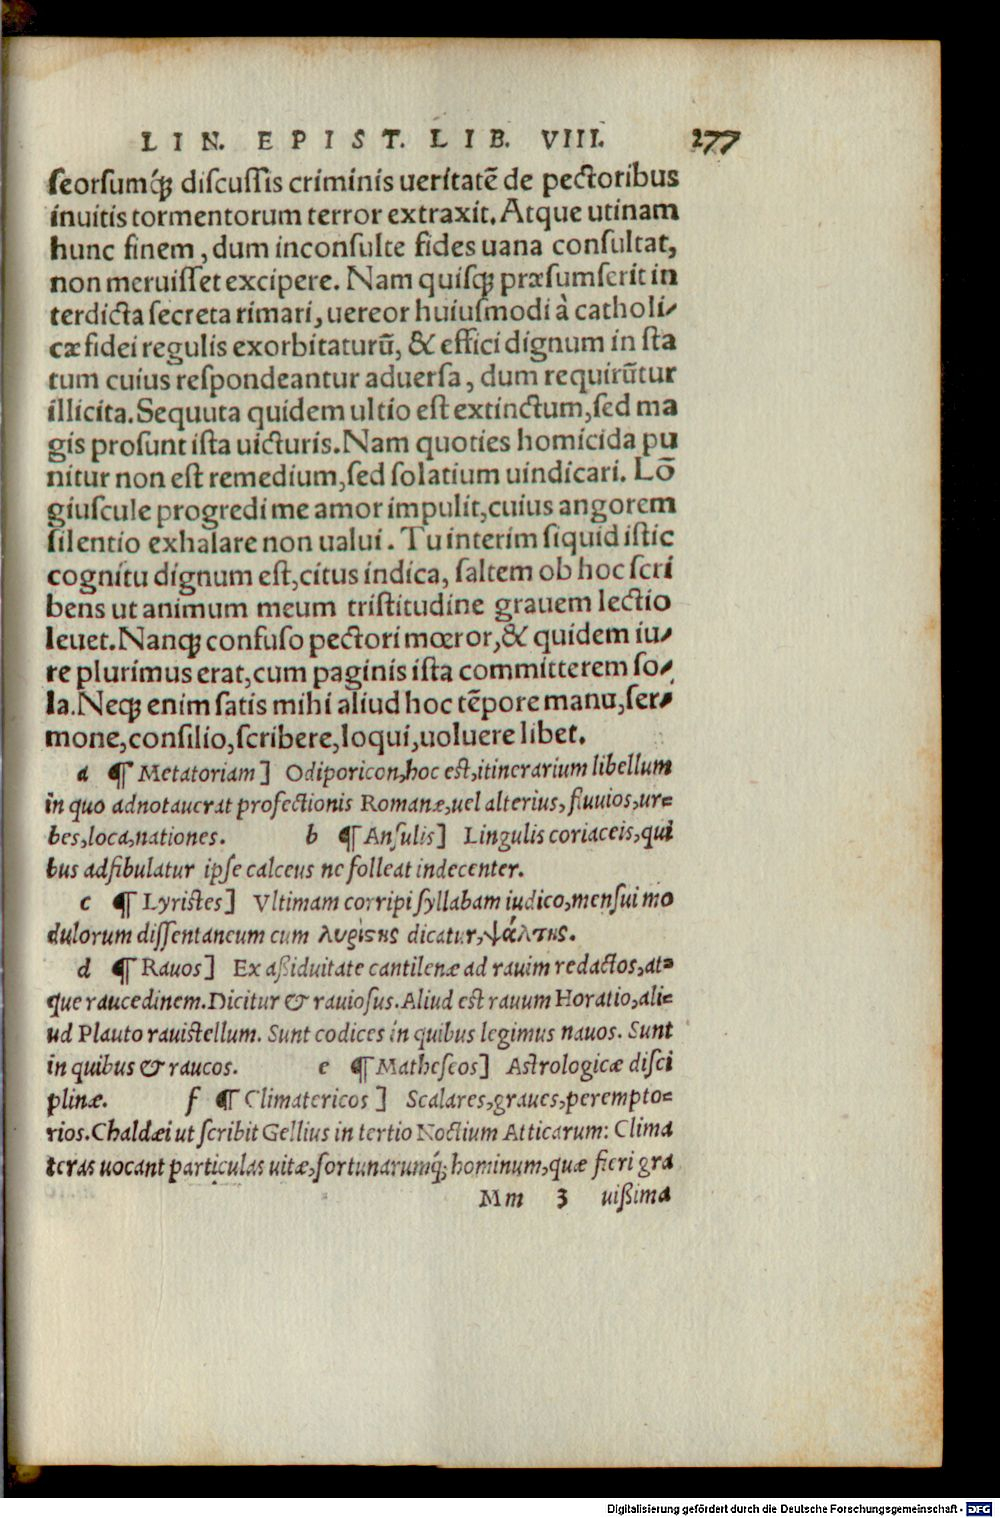 LIN. EPIST. LIB. VIII. 277
seorsumq́ꝫ discussis criminis ueritatē de pectoribus
inuitis tormentorum terror extraxit. Atque utinam
hunc finem, dum inconsulte fides uana consultat,
non meruisset excipere. Nam quisqꝫ præsumserit in
terdicta secreta rimari, uereor huiusmodi à catholi-
cæ fidei regulis exorbitaturū, & effici dignum in sta
tum cuius respondeantur aduersa, dum requirūtur
illicita. Sequuta quidem ultio est extinctum, sed ma
gis prosunt ista uicturis. Nam quoties homicida pu
nitur non est remedium, sed solatium uindicari. Lō
giuscule progredi me amor impulit, cuius angorem
silentio exhalare non ualui. Tu interim siquid istic
cognitu dignum est, citus indica, saltem ob hoc scri
bens ut animum meum tristitudine grauem lectio
leuet. Nanqꝫ confuso pectori mœror, & quidem iu-
re plurimus erat, cum paginis ista committerem so-
la. Neqꝫ enim satis mihi aliud hoc tēpore manu, ser-
mone, consilio, scribere, loqui, uoluere libet.
a ¶ Metatoriam] Odiporicon, hoc est, itinerarium libellum
in quo adnotauerat profectionis Romanæ, uel alterius, fluuios, ur-
bes, loca, nationes. b ¶ Ansulis] Lingulis coriaceis, qui
bus adfibulatur ipse calceus ne folleat indecenter.
c ¶ Lyristes] Vltimam corripi syllabam iudico, mensui mo
dulorum dissentaneum cum λυρίστης dicatur, ψάλτης.
d ¶ Rauos] Ex aßiduitate cantilenæ ad rauim redactos, at-
que raucedinem. Dicitur & rauiosus. Aliud est rauum Horatio, ali-
ud Plauto rauistellum. Sunt codices in quibus legimus nauos. Sunt
in quibus & raucos. e ¶ Matheseos] Astrologicæ disci
plinæ. f ¶ Climatericos ] Scalares, graues, perempto-
rios. Chaldæi ut scribit Gellius in tertio Noctium Atticarum: Clima
teras uocant particulas uitæ, fortunarumq́; hominum, quæ fieri gra
Mm 3 uißima
Digitalisierung gefördert durch die Deutsche Forschungsgemeinschaft - DFG